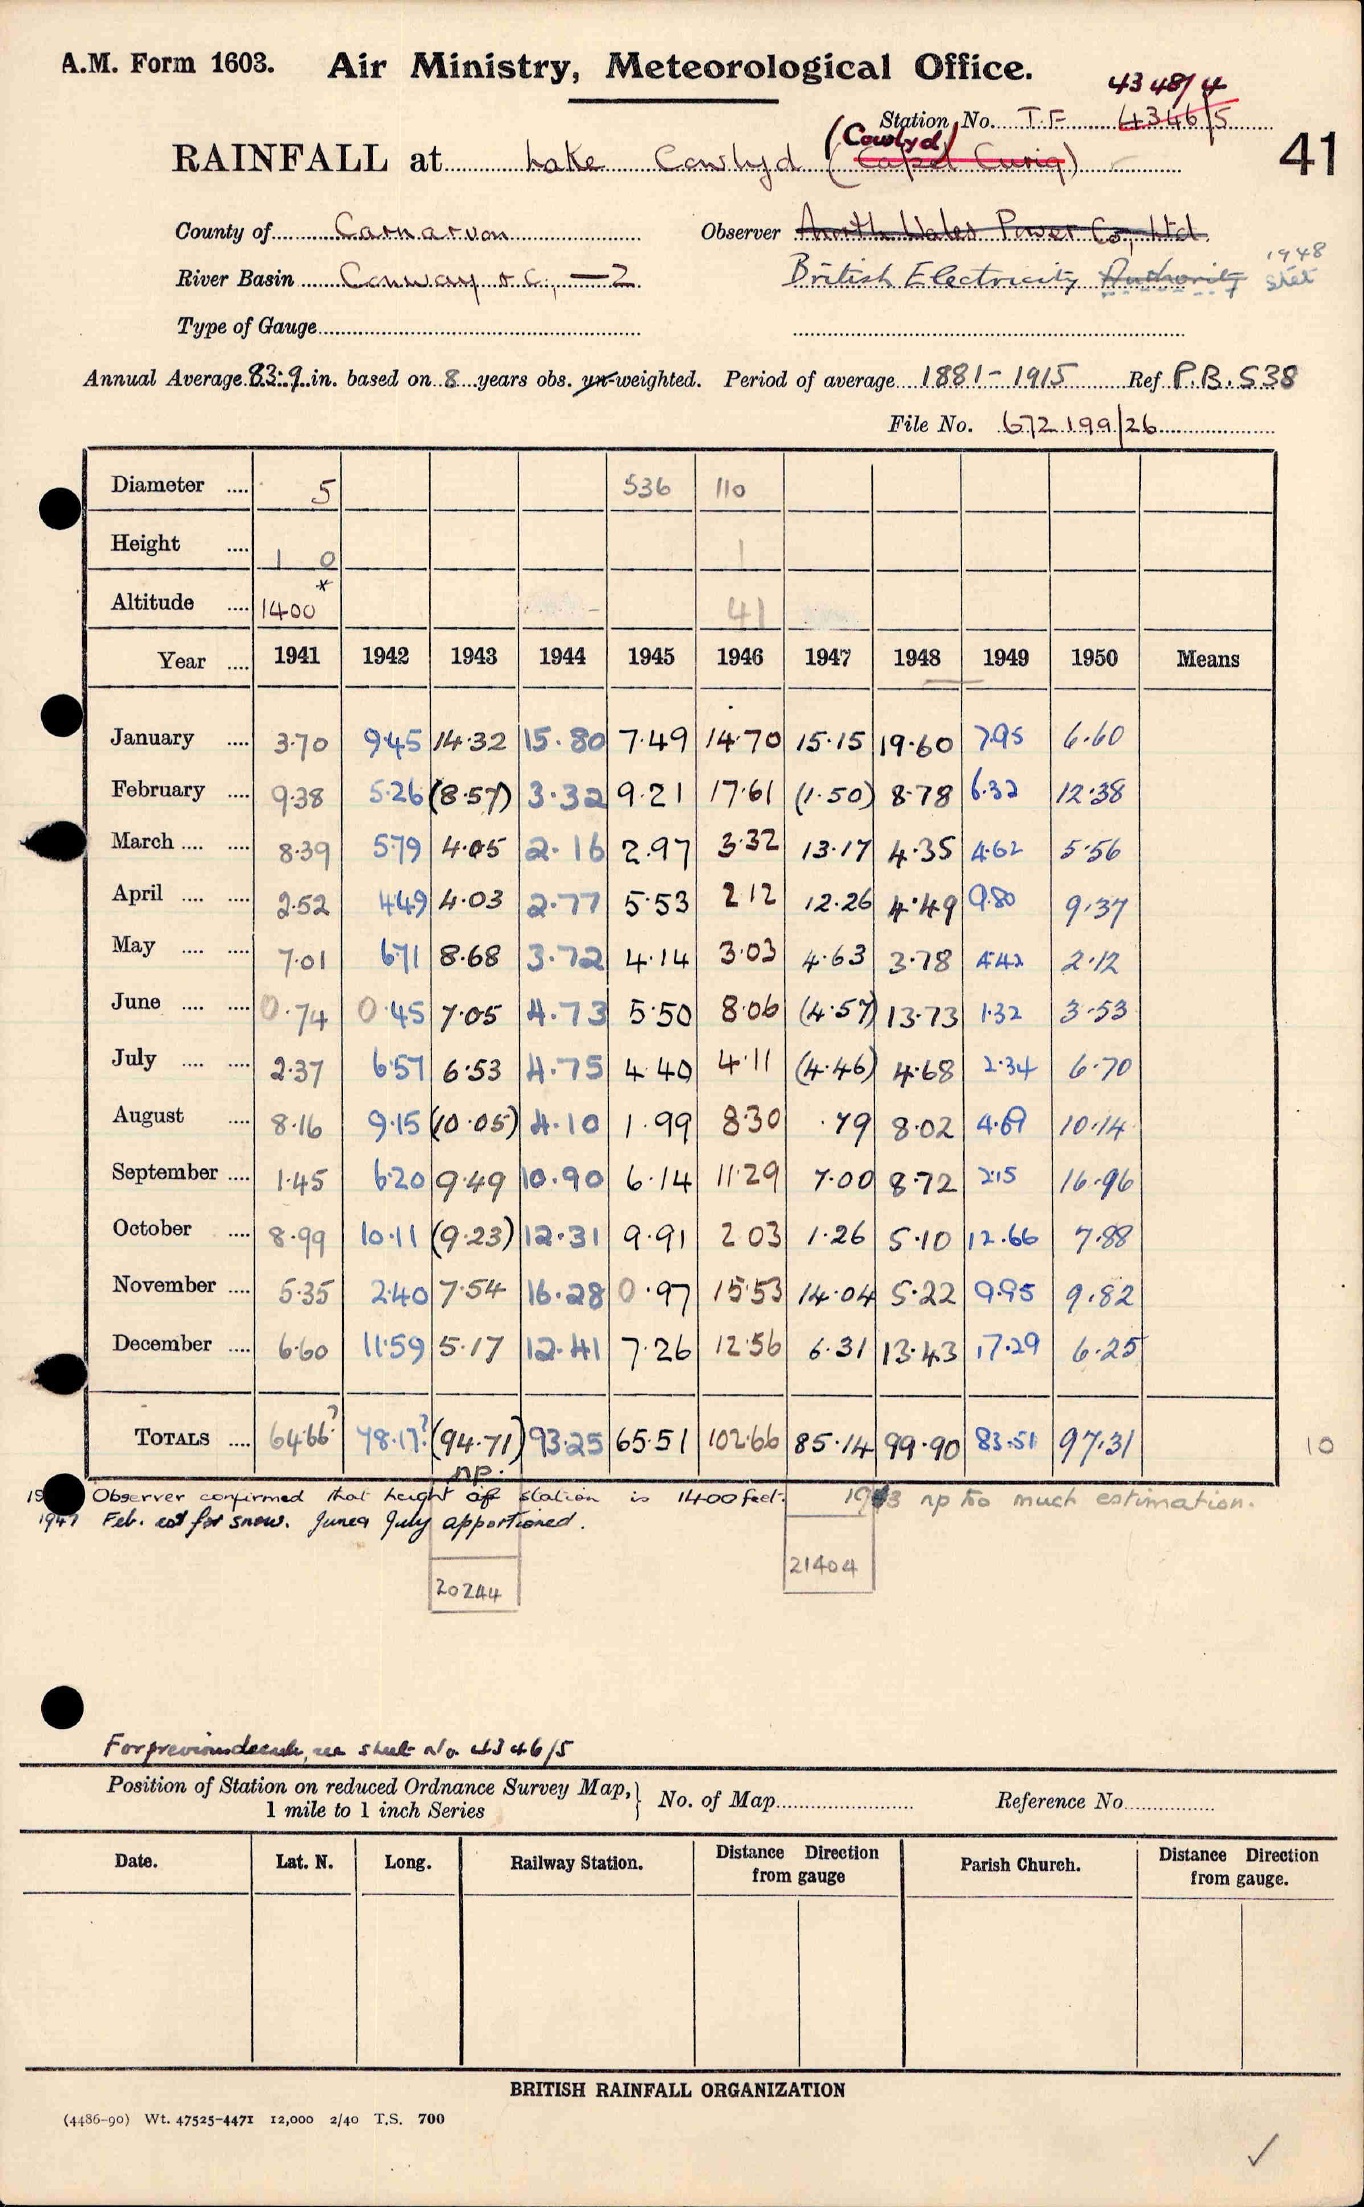 A.M. Form 1603. Air Ministry, Meteorological Office.
4348/4
Station No. T.F 4346/5
41
(Cowlyd)
RAINFALL at Lake Cowlyd (Capel Curig)
County of Carnarvon Observer North Wales Power Co., Ltd.
River Basin Conway &c., —2 British Electricity Authority 1948 Stet
Type of Gauge
Annual Average 83.9 in. based on 8 years obs. un-weighted. Period of average 1881-1915 Ref P.B.S38
File No. 672199/26
Diameter .... 5 536 110
Height .... 1 0 1
Altitude .... 1400 * 41
Year .... 1941 1942 1943 1944 1945 1946 1947 1948 1949 1950 Means
January .... 3.70 9.45 14.32 15.80 7.49 14.70 15.15 19.60 7.95 6.60
February .... 9.38 5.26 (8.57) 3.32 9.21 17.61 (1.50) 8.78 6.32 12.38
March .... .... 8.39 5.79 4.05 2.16 2.97 3.32 13.17 4.35 4.62 5.56
April .... .... 2.52 4.49 4.03 2.77 5.53 2.12 12.26 4.49 9.80 9.37
May .... .... 7.01 6.71 8.68 3.72 4.14 3.03 4.63 3.78 4.42 2.12
June .... .... 0.74 0.45 7.05 4.73 5.50 8.06 (4.57) 13.73 1.32 3.53
July .... .... 2.37 6.57 6.53 4.75 4.40 4.11 (4.46) 4.68 2.34 6.70
August .... 8.16 9.15 (10.05) 4.10 1.99 8.30 .79 8.02 4.69 10.14
September .... 1.45 6.20 9.49 10.90 6.14 11.29 7.00 8.72 2.15 16.96
October .... 8.99 10.11 (9.23) 12.31 9.91 2.03 1.26 5.10 12.66 7.88
November .... 5.35 2.40 7.54 16.28 0.97 15.53 14.04 5.22 9.95 9.82
December .... 6.60 11.59 5.17 12.41 7.26 12.56 6.31 13.43 17.29 6.25
TOTALS .... 64.66? 78.17? (94.71) 93.25 65.51 102.66 85.14 99.90 83.51 97.31 10
np.
Observer confirmed that height of station is 1400 feet. 1943 np too much estimation.
1947 Feb. est for snow. June & July apportioned.
21404
20244
For previous decade, see sheet No. 4346/5
Position of Station on reduced Ordnance Survey Map, 1 mile to 1 inch Series } No. of Map Reference No
Date. Lat. N. Long. Railway Station. Distance Direction from gauge Parish Church. Distance Direction from gauge.
BRITISH RAINFALL ORGANIZATION
(4486-90) Wt. 47525-4471 12,000 2/40 T.S. 700